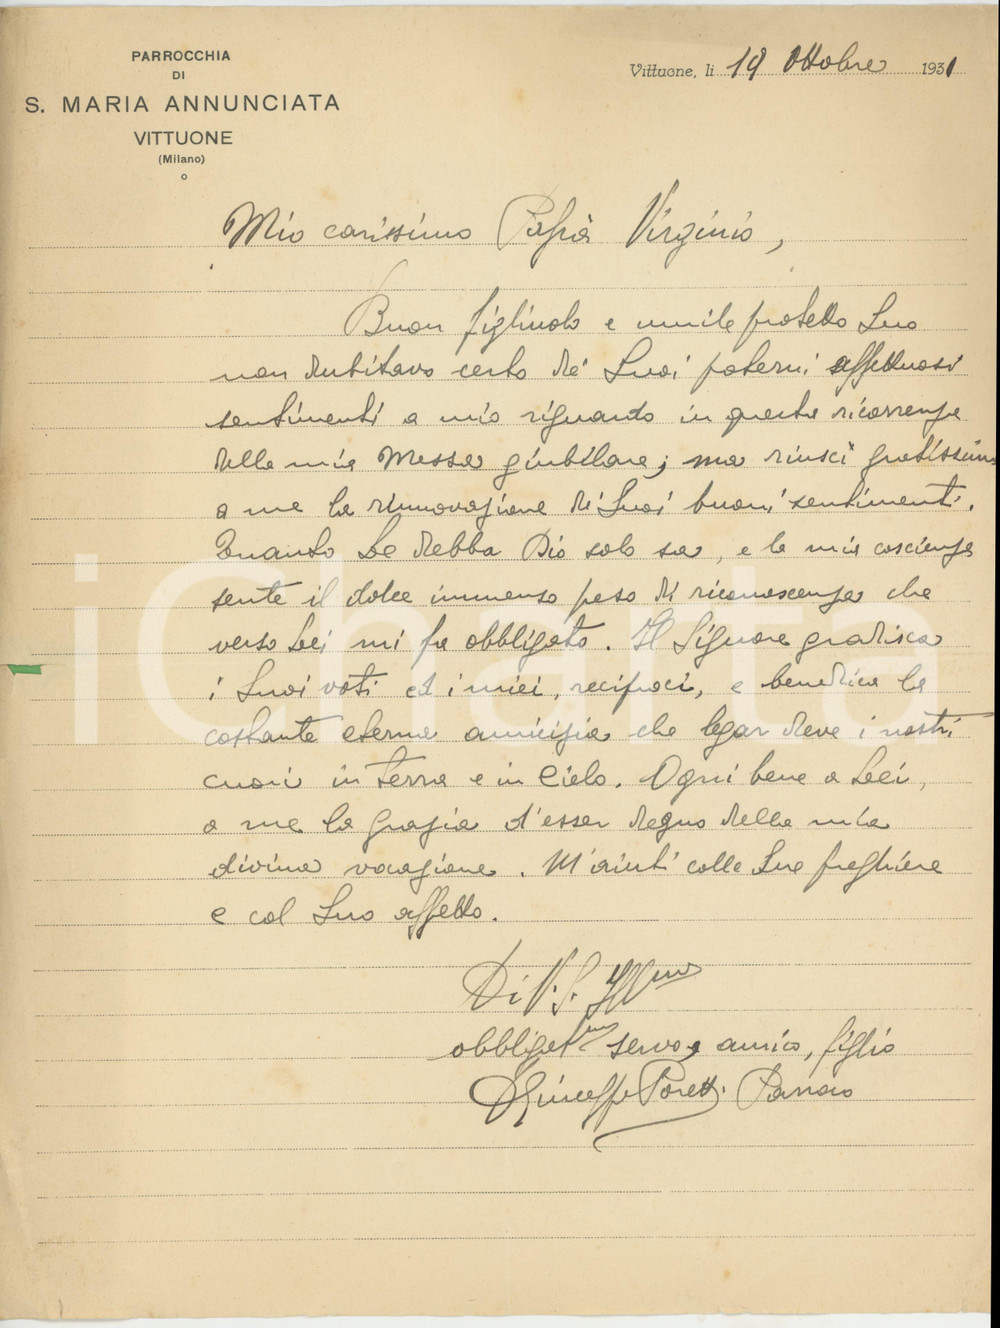 PARROCCHIA
DI
S. MARIA ANNUNCIATA
VITTUONE
(Milano)
Vittuone, li 19 Ottobre 1931
Mio carissimo Papà Virginio,
Buon figliuolo e umile protetto Suo
non dubitavo certo dei Suoi paterni affettuosi
sentimenti a mio riguardo in questa ricorrenza
della mia Messa giubilare; ma riuscì gratissima
a me la rinnovazione di Suoi buoni sentimenti.
Quanto Le debba Dio solo sa, e la mia coscienza
sente il dolce immenso peso di riconoscenza che
verso Lei mi fa obbligato. Il Signore gradisca
i Suoi voti ed i miei, reciproci, e benedica la
costante eterna amicizia che legar deve i nostri
cuori in terra e in Cielo. Ogni bene a Lei,
a me la grazia d'esser degno della mia
divina vocazione. M'aiuti colle Sue preghiere
e col Suo affetto.
Di V. S. Ill.ma
obbligat.mo servo, amico, figlio
D Giuseppe Poretti Parroco
iCharta